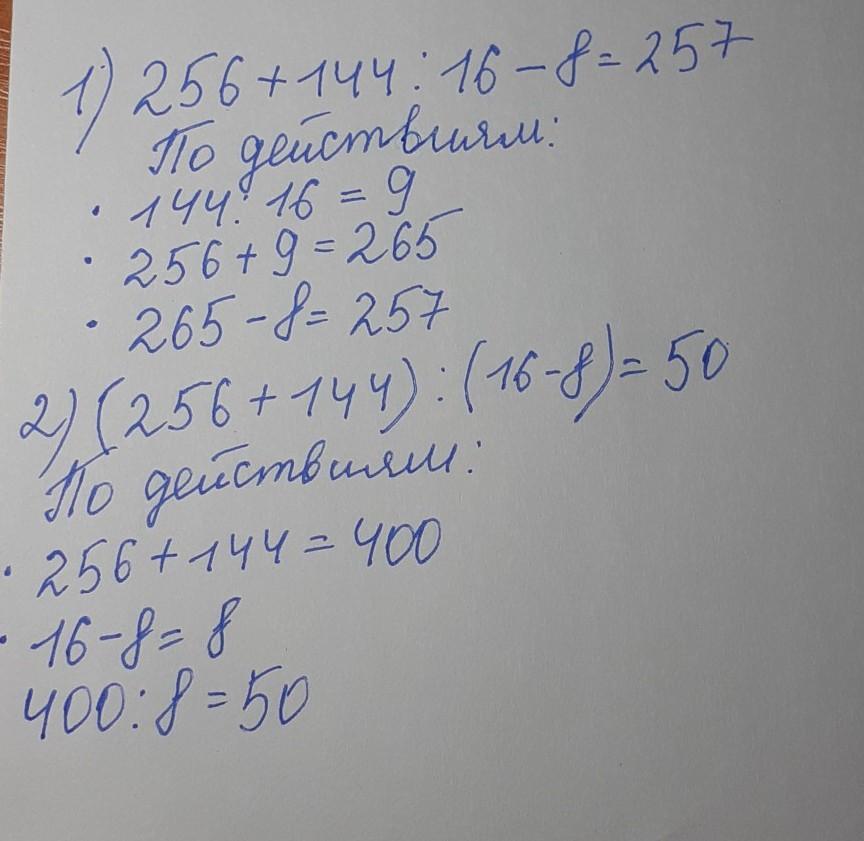 1) 256 + 144 : 16 - 8 = 257
По действиям:
· 144 : 16 = 9
· 256 + 9 = 265
· 265 - 8 = 257
2) (256 + 144) : (16 - 8) = 50
По действиям:
· 256 + 144 = 400
· 16 - 8 = 8
400 : 8 = 50